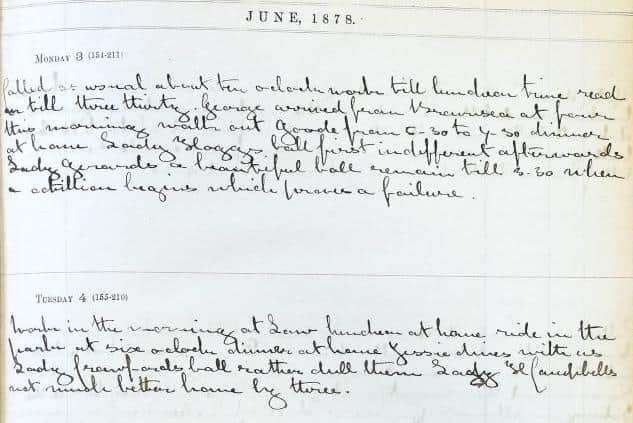 JUNE, 1878.
MONDAY 3 (154-211)
Called as usual about ten oclock work till luncheon time read
till three thirty. George arrived from at four
this morning walk out Goode from 6-30 to 7-30 dinner
at home Lady ball first indifferent afterwards
Lady Gerards a beautiful ball remain till 3.30 when
a cotillion begins which proves a failure.
TUESDAY 4 (155-210)
Work in the morning at Law luncheon at home ride in the
park at six oclock dinner at home Jessie dines with us
Lady Crawfords ball rather dull then Lady Campbells
not much better home by three.